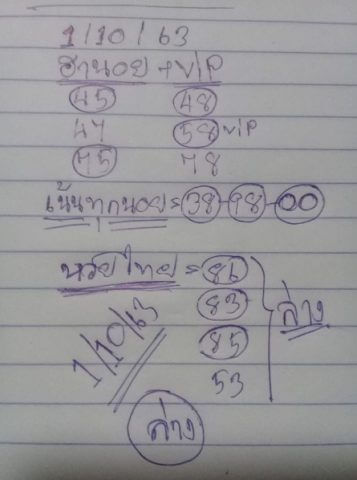 1/10/63
ฮานอย + VIP
45 48
47 58 VIP
75 78
เน้นทุกนอย = 38-98-00
หวยไทย = 86
83
85
53
ล่าง
1/10/63
ล่าง